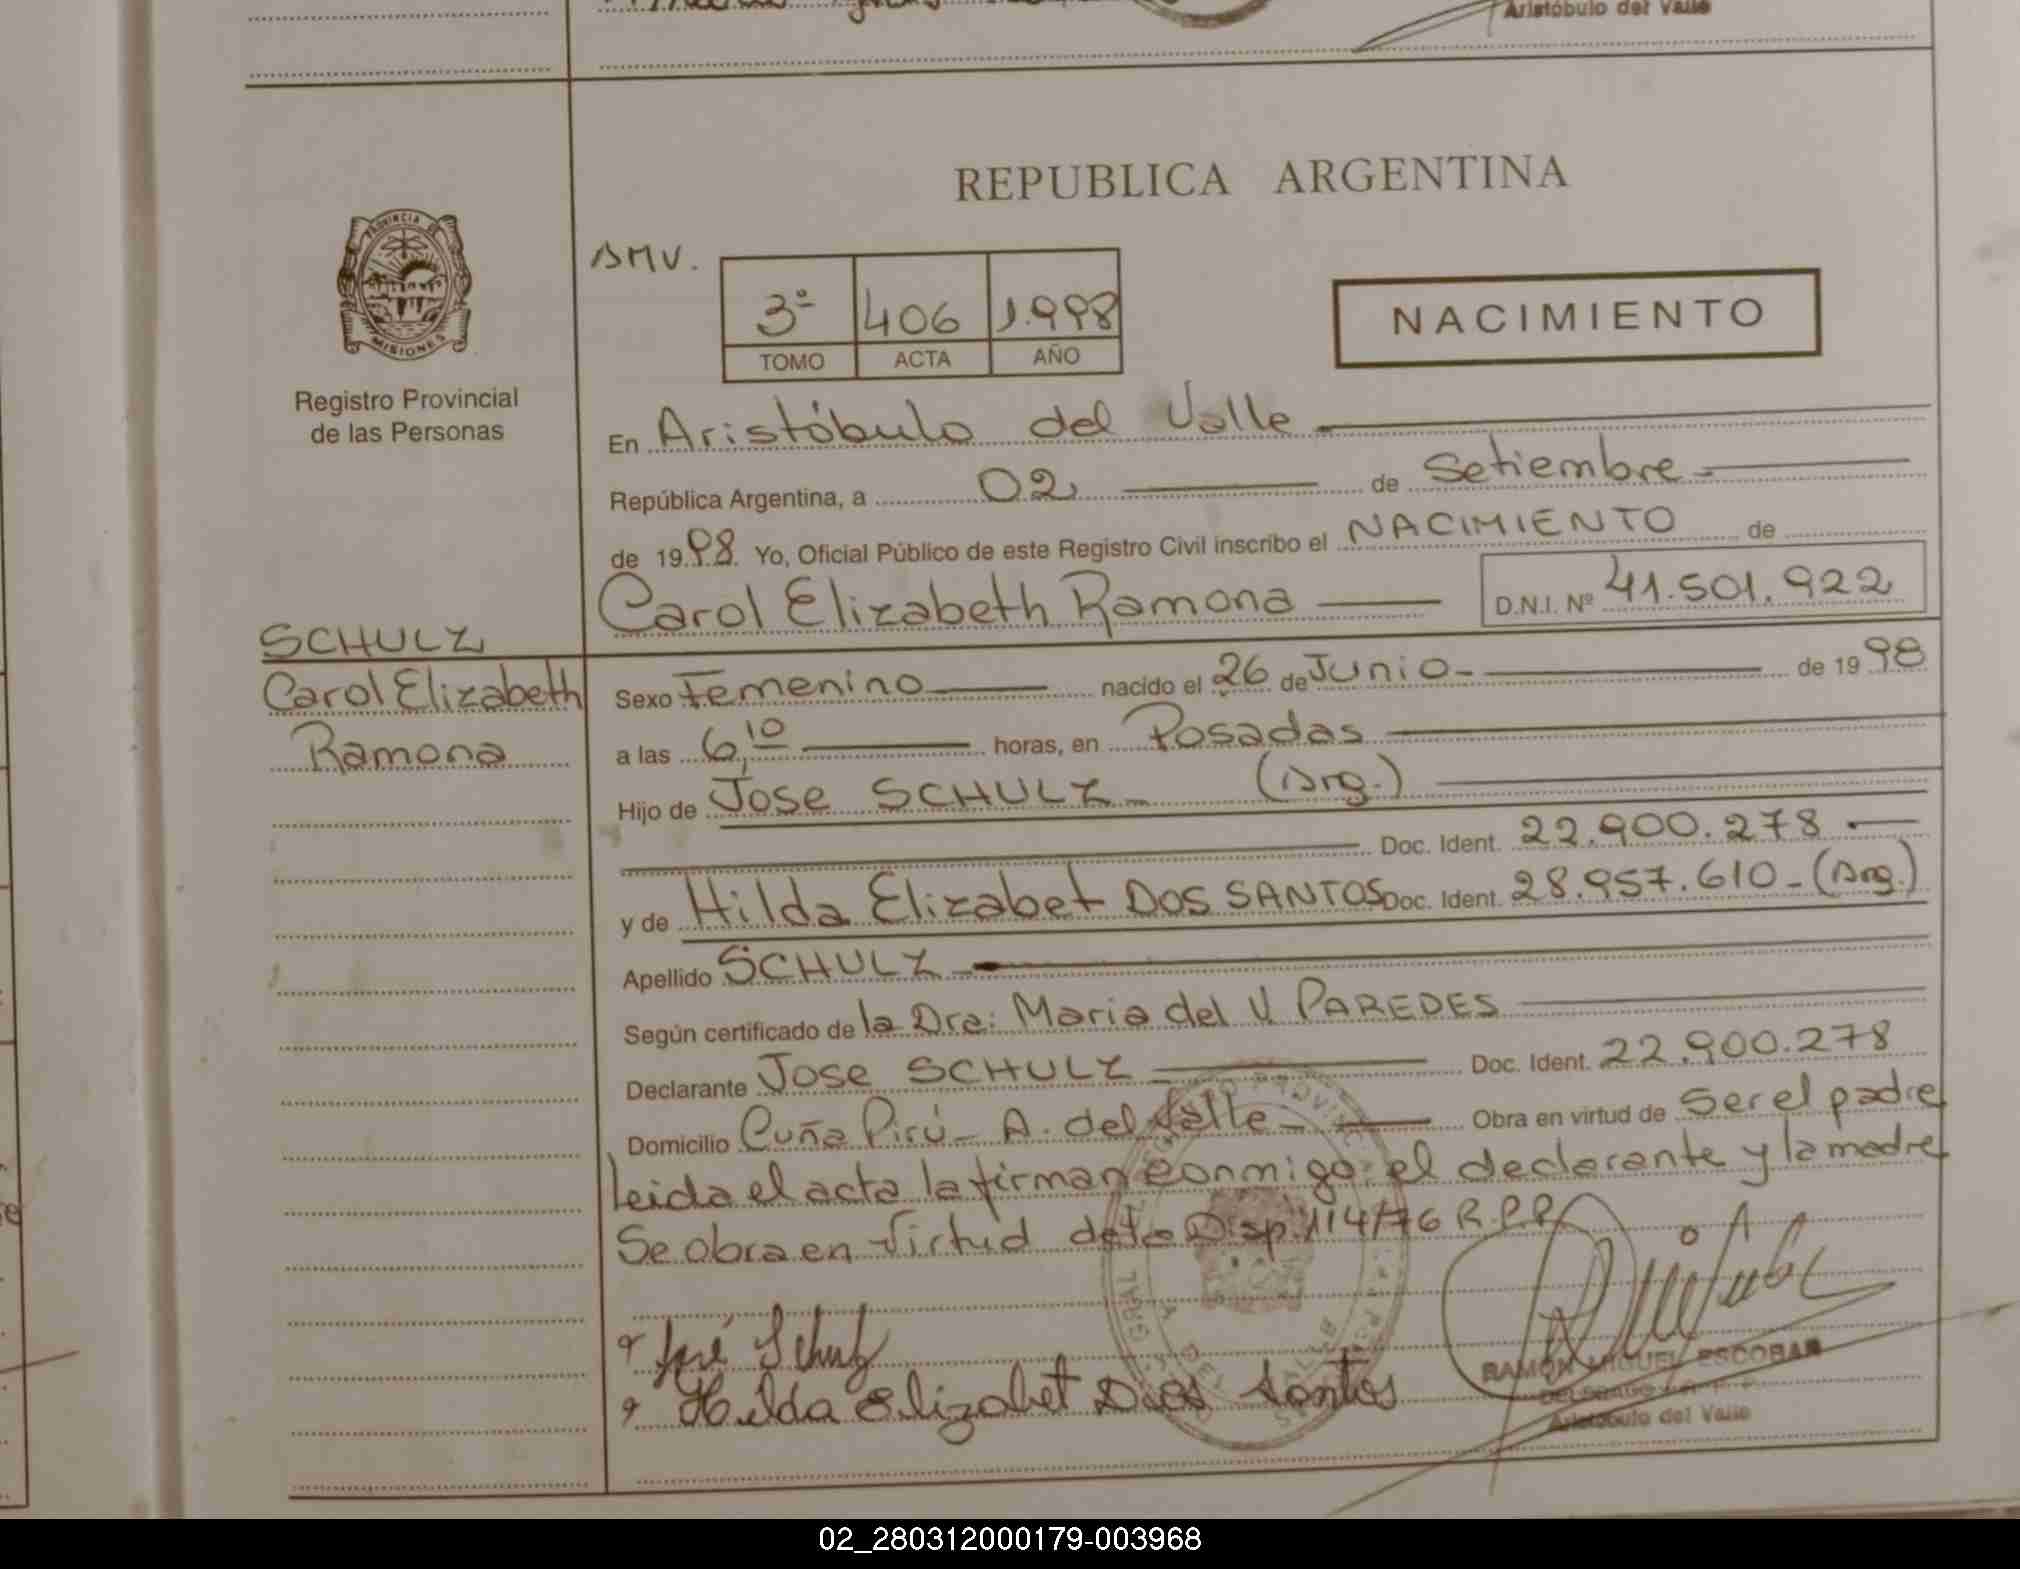 Aristóbulo del Valle
REPUBLICA ARGENTINA
PROVINCIA DE
MISIONES
Registro Provincial
de las Personas
3º 406 1.998
TOMO ACTA AÑO
NACIMIENTO
En Aristóbulo del Valle
República Argentina, a 02 de Setiembre
de 1998 Yo, Oficial Público de este Registro Civil inscribo el NACIMIENTO de
Carol Elizabeth Ramona D.N.I. Nº 41.501.922
SCHULZ
Carol Elizabeth
Ramona
Sexo Femenino nacido el 26 de Junio de 1998
a las 6,10 horas, en Posadas
Hijo de Jose SCHULZ (Arg.)
Doc. Ident. 22.900.278
y de Hilda Elizabet DOS SANTOS Doc. Ident. 28.957.610 - (Arg.)
Apellido SCHULZ
Según certificado de la Dra: Maria del V. PAREDES
Declarante Jose SCHULZ Doc. Ident. 22.900.278
Domicilio Cuña Pirú - A. del Valle - Obra en virtud de ser el padre
Leida el acta la firman conmigo: el declarante y la madre
Se obra en virtud de la Disp. 114/76 R.P.P.
José Schulz
Hilda Elizabet Dos Santos
RAMON MIGUEL ESCOBAR
Aristóbulo del Valle
02_280312000179-003968